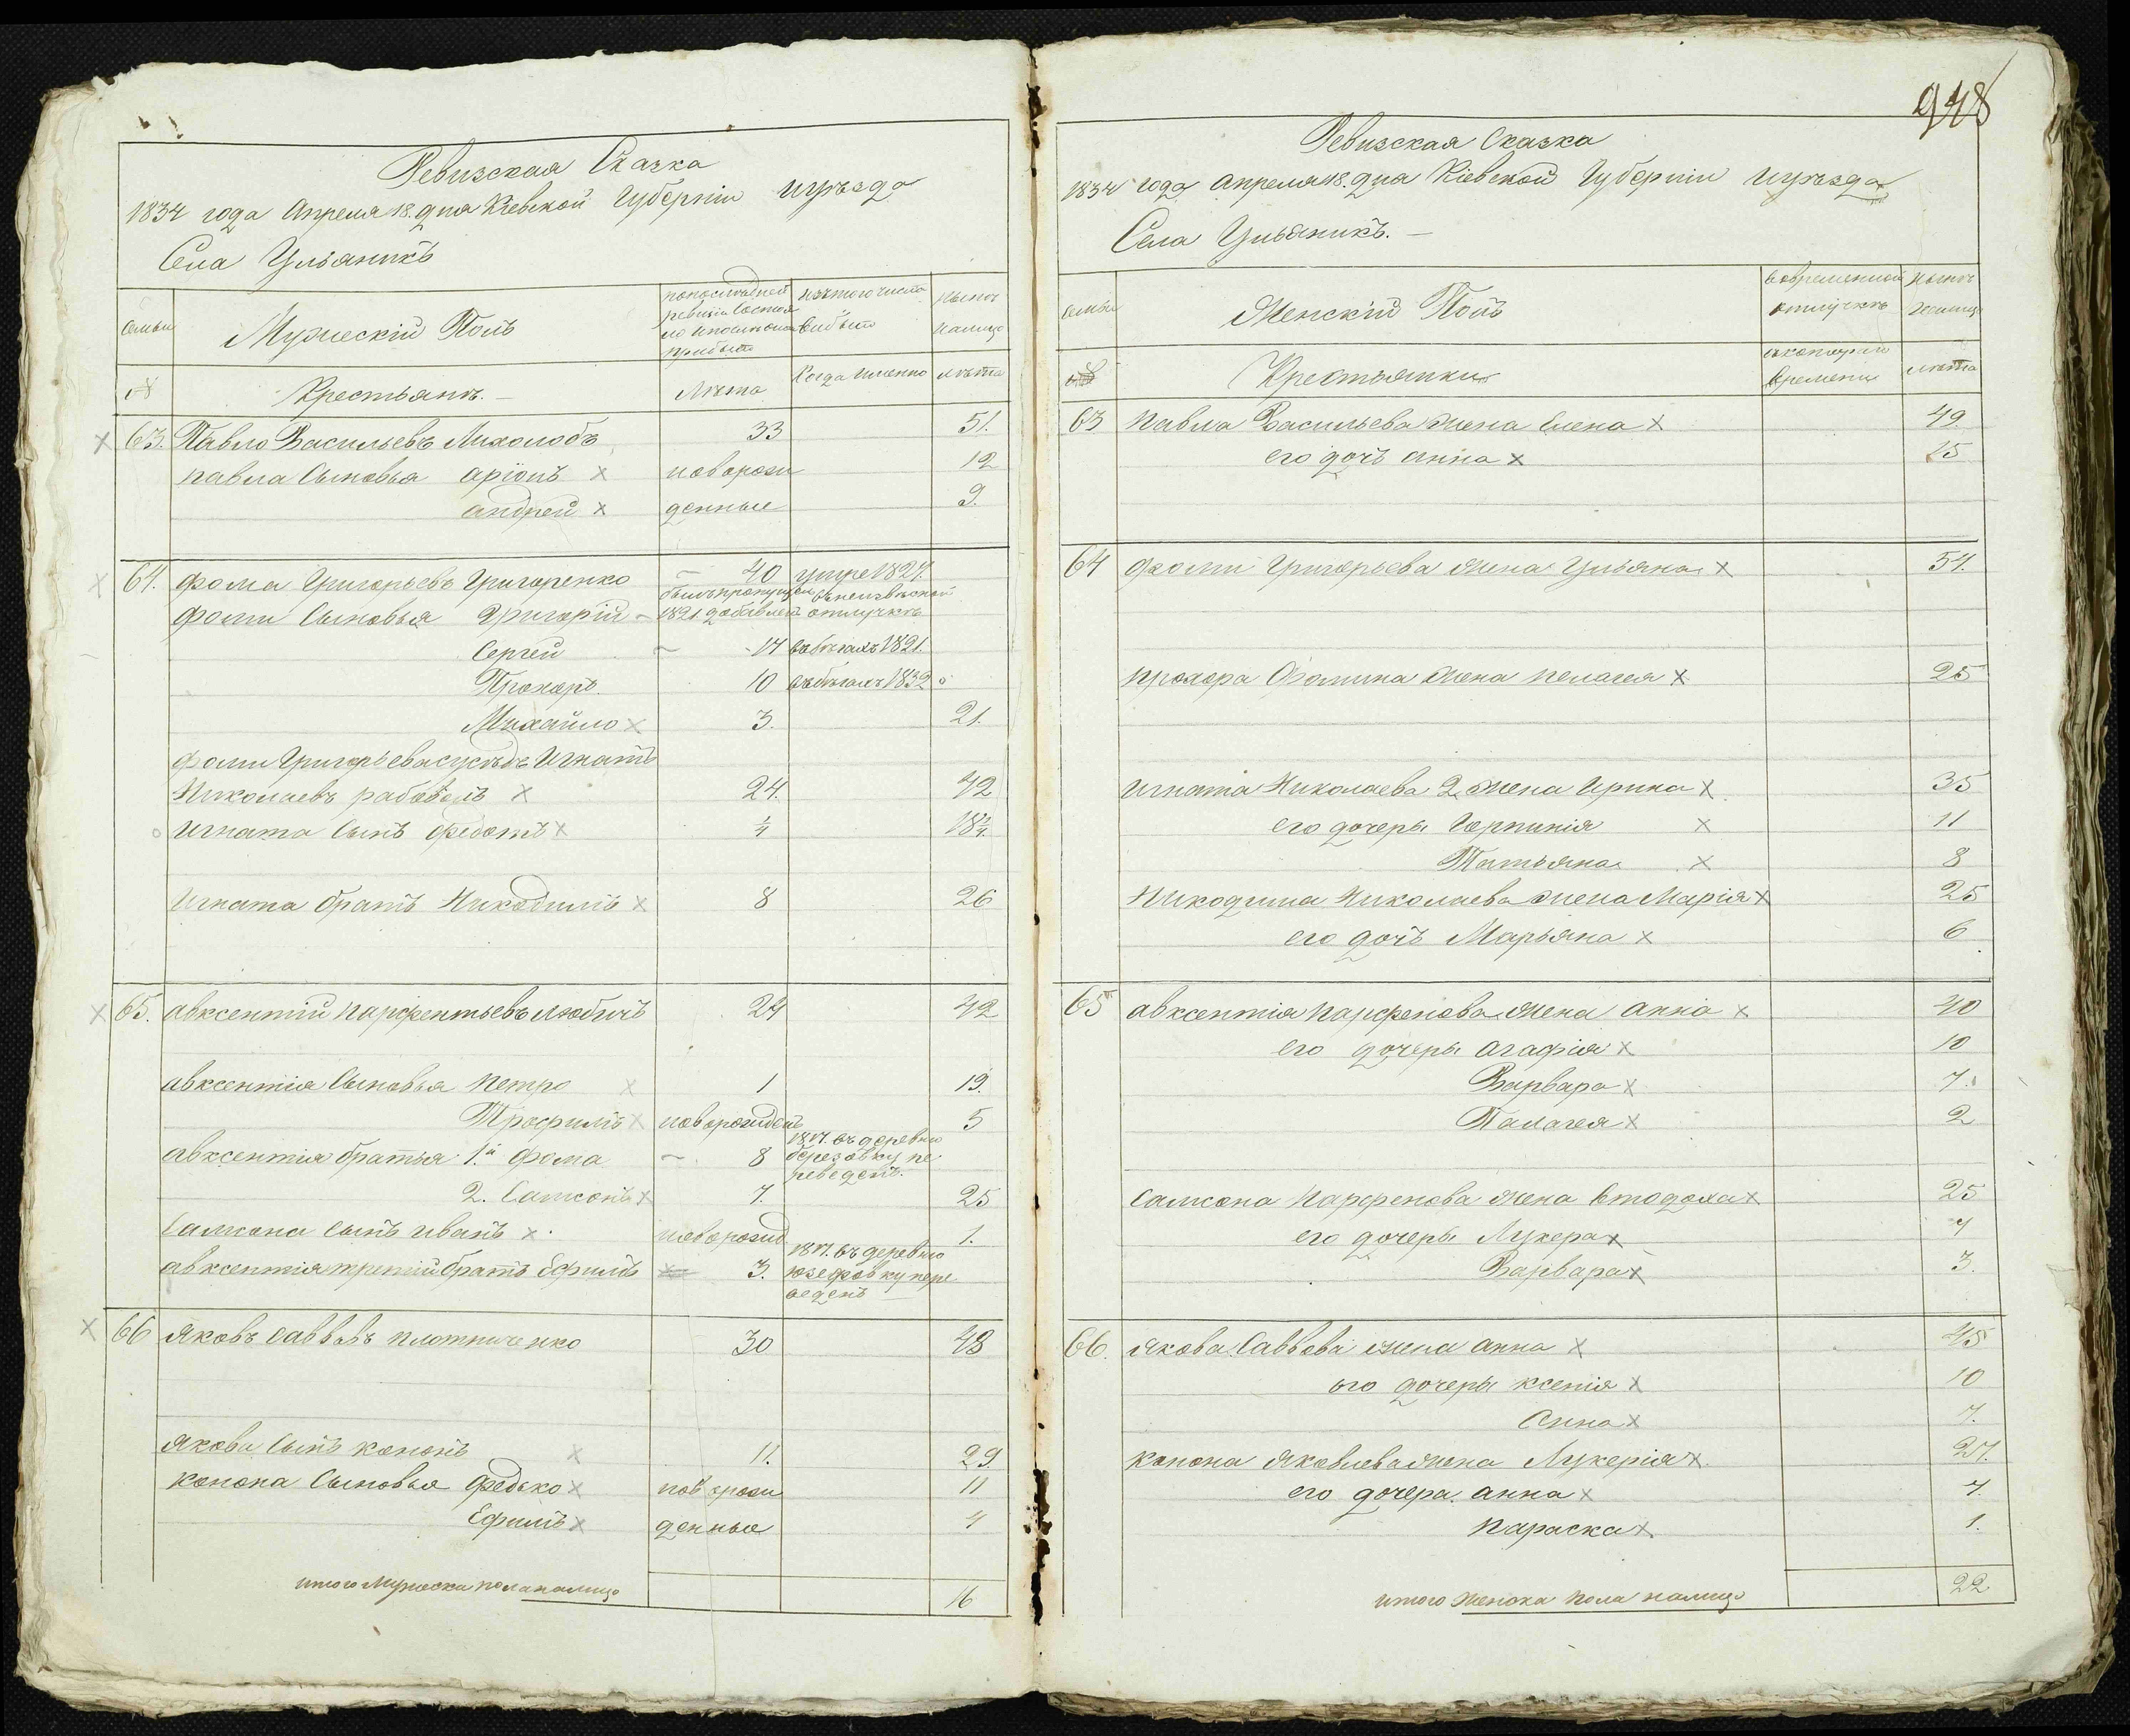 Ревизская Сказка
1834 года Апреля 18. дня Кіевской Губерніи уѣзда
Села Ульяникъ
семьи
Мужескій Полъ
попослѣдней ревизіи состояло и послѣ того прибыло
изътого числа выбыло
нынѣ налицо
№
Крестьянъ. —
Лѣта
Когда именно
лѣта
63. Павло Васильевъ Лихолобъ 33 51.
павла Сыновья аріонъ х новорож 12
андрей х денные 9.
64. фома Григорьевъ Григоренко — 40 умре 1827.
фоми Сыновья Григорій — былъ пропущенъ 1821 добавленъ въ неизвѣстной отлучкѣ
Сергей — 14 въбѣгахъ 1821.
Прохоръ. 10 въбѣгахъ 1832
Михайло х 3. 21.
фоми Григорьева сусѣдъ Игнатъ
Николаевъ х 24. 42
игната Сынъ федотъ х 1/4 18 1/4.
Игната братъ Никодимъ х 8 26
65. авксентій парфентьевъ любичъ 24 42
авксентія Сыновья петро х 1 19.
Трофимъ х новорожденъ 5
авксентія братья 1.й фома — 8 1817. въ деревню березовку переведенъ.
2. Самсонъ х 7. 25
Самсона сынъ иванъ х новорожд 1.
авксентія третій братъ Ефимъ 3. 1817. въ деревню юзефовку переведенъ
66 яковъ саввовъ плотниченко 30 48
якова Сынъ кононъ х 11. 29
конона Сыновья федько х новорож 11
Ефимъ х денные 4
итого Мужеска пола налицо 16
948
Ревизская Сказка
1834 года апреля 18. дня Кіевской Губерніи уѣзда
Села Ульяникъ. —
семьи
Женскій Полъ
вовременной отлучкѣ
нынѣ налицо
№
Крестьянки
съкотораго времени
лѣта
63 павла Васильева жена Елена х 49.
его дочъ анна х 15
64 фоми Григорьева жена Ульяна х 51.
прохора Фомина жена пелагея х 25
игната Николаева 2 жена Ирина х 35
его дочеры Горпинія х 11
Татьяна х 8
Никодима Николаева жена Марія х 25
его дочъ Марьяна х 6
65 авксентія парфенова жена анна х 40
его дочеры агафія х 10
Варвара х 7.
Палагея х 2
Самсона парфенова жена Стодоха х 25
его дочеры Лукера х 4
Варвара х 3.
66. якова Саввова жена анна х 45
его дочеры ксенія х 10
Анна х 7.
конона яковлева жена Лукерія х 27.
его дочера анна х 4.
параска х 1.
итого женска пола налицо 22